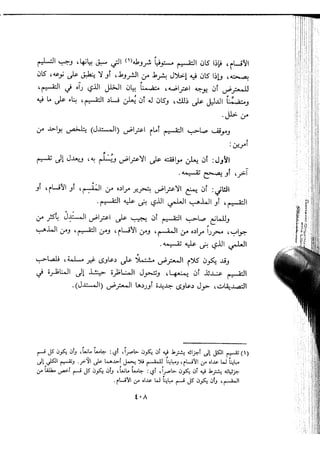 الأقسام، فإذا كان التقسيم مستوفياً شروطه(١) التي سبق بيانها، وجب التسليم
بصحته، وإذا كان فيه إخلال بشرط من الشروط، أو لا ينطبق على نوعه، كان
للمعترض أن يوجه اعتراضه، متضمناً بيان الخلل الذي رآه في التقسيم،
ومتضمناً الدليل على ذلك، وكان له أن يعلن فساد التقسيم، بناء على ما فيه
من خلل.
وموقف صاحب التقسيم أمام اعتراض (المستدل) يتلخص بواحد من
أمرين:
الأول: أن يعلن موافقته على الاعتراض ويسلّم به، ويعدل إلى تقسيم
آخر، أو يصحح تقسيمه.
الثاني: أن يمنع الاعتراض بتحرير مراده من المقسم، أو الأقسام، أو
التقسيم، أو المذهب العلمي الذي بنى عليه التقسيم.
وللمانع صاحب التقسيم أن يجيب على اعتراض المستدل بأكثر من
جواب، محرراً مراده من المقسم، ومن الأقسام، ومن التقسيم، ومن المذهب
العلمي الذي بنى عليه تقسيمه.
وقد يكون كلام المعترض مشتملاً على دعاوى غير مسلمة، فلصاحب
التقسيم عندئذ أن يمنعها، وتتحول المناظرة حينئذ إلى المناظرة في
التصديقات، حول دعاوى جديدة أوردها المعترض (المستدل).
(١) تقسيم الكل إلى أجزائه يشترط فيه أن يكون حاصراً، أي: جامعاً مانعاً، وأن يكون كل قسم
مبايناً لما عداه من الأقسام، ومبايناً للمقسم فلا يحمل أحدهما على الآخر. وتقسيم الكلي إلى
جزئياته يشترط فيه أن يكون حاصراً، أي: جامعاً مانعاً، وأن يكون كل قسم أخص مطلقاً من
المقسم، وأن يكون كل قسم مبايناً لما عداه من الأقسام.
٤٠٨